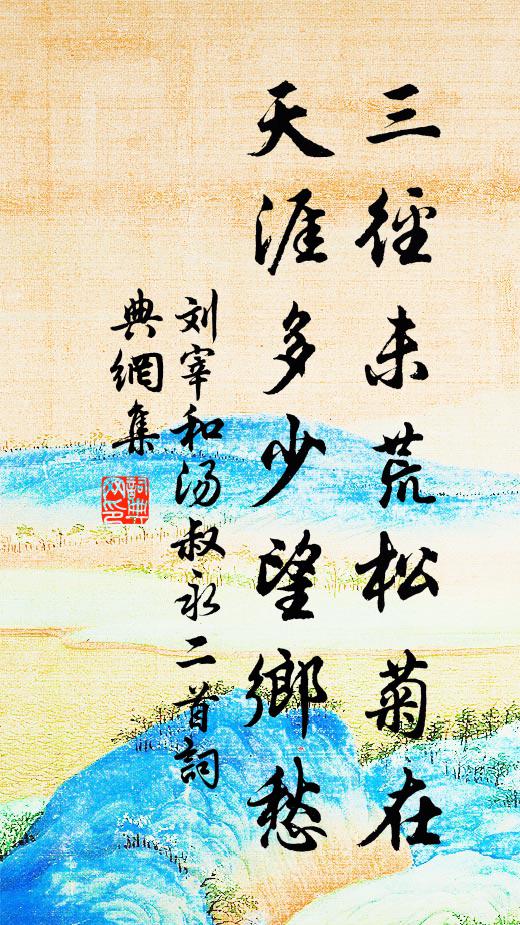 三徑未荒松菊在
天涯多少望鄉愁
刘宰和汤叔永二首詞
典網集